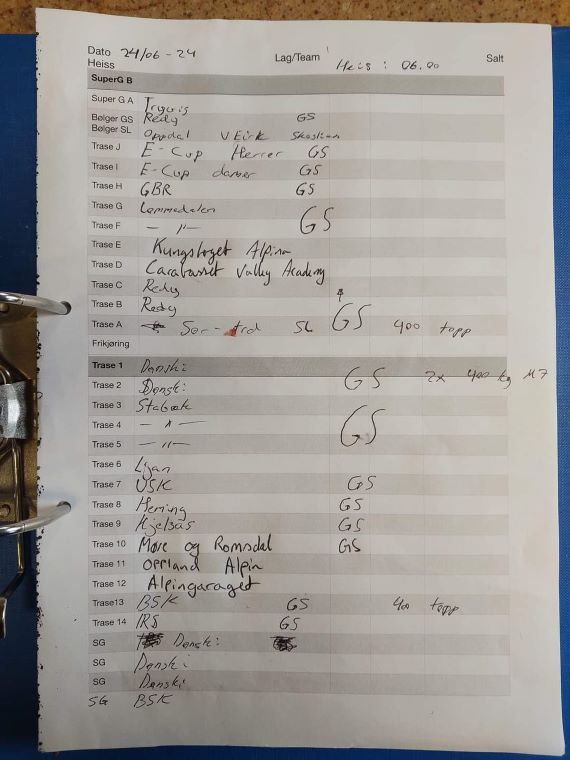 Dato 24/06-24 Lag/Team Heis: 06.00 Salt
Heiss
SuperG B
Super G A
Bølger GS Redy GS
Bølger SL Oppdal
Trase J E-Cup Herrer GS
Trase I E-Cup damer GS
Trase H GBR GS
Trase G Lommedalen
Trase F — " — GS
Trase E Kungsberget Alpina
Trase D Carabasset Valley Academy
Trase C Redy
Trase B Redy
Trase A Sør-trd SL GS 400 topp
Frikjøring
Trase 1 Danski
Trase 2 Danski GS 2x 400 kg M7
Trase 3 Stabæk
Trase 4 — " — GS
Trase 5 — " —
Trase 6
Trase 7 USK GS
Trase 8 Heming GS
Trase 9 Kjelsås GS
Trase 10 Møre og Romsdal GS
Trase 11 Oppland Alpin
Trase 12 Alpingaraget
Trase13 BSK GS 400 topp
Trase 14 IRS GS
SG Danski
SG Danski
SG Danski
SG BSK